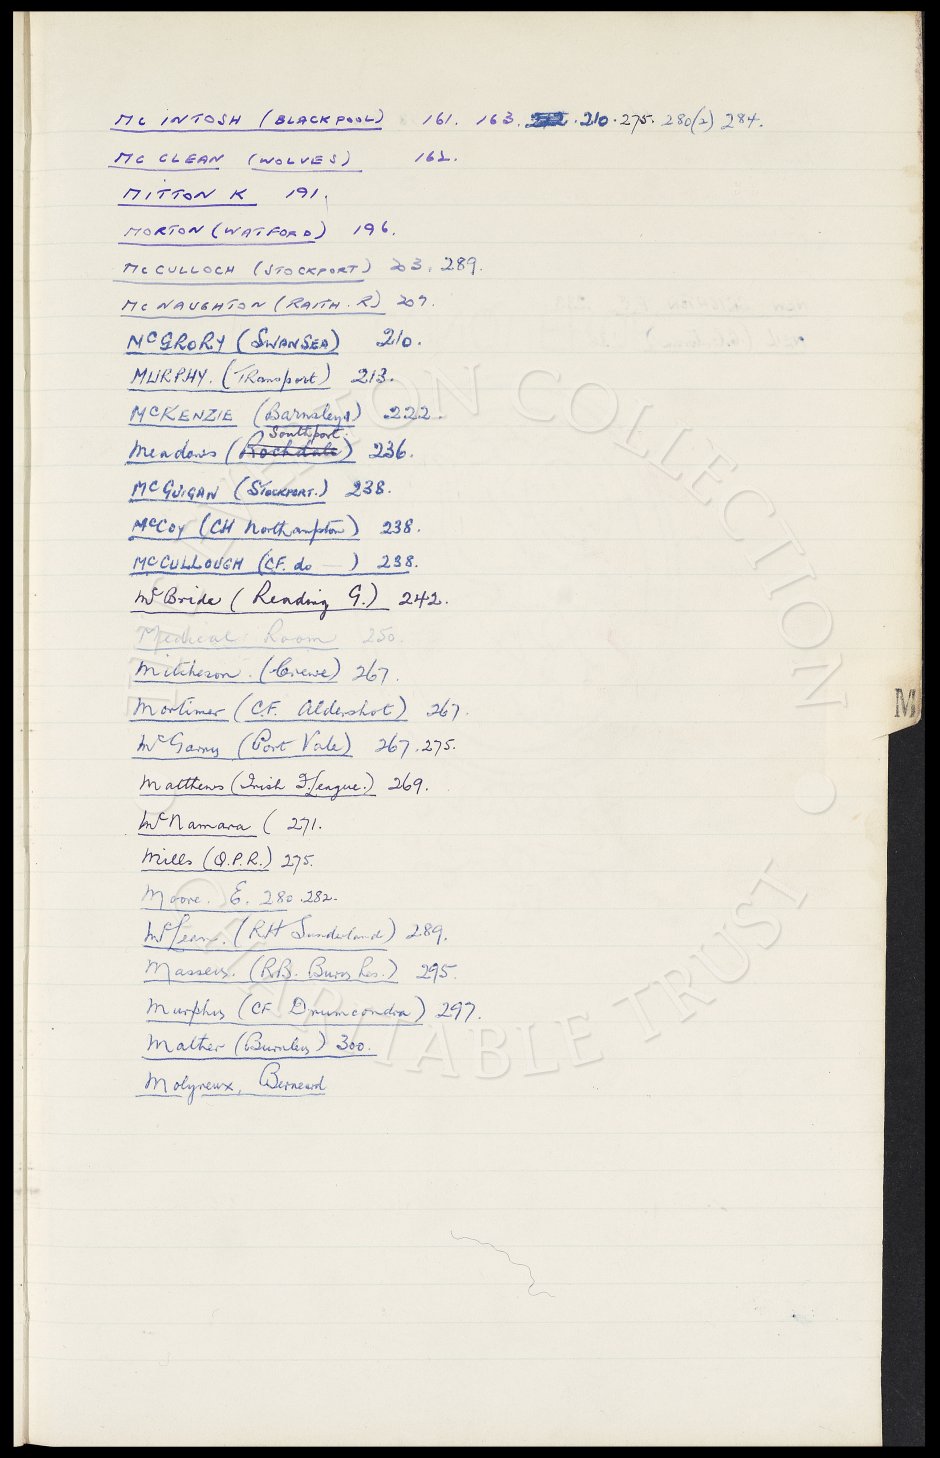 Mc INTOSH (BLACKPOOL) 161. 163. 210. 275. 280(2) 284.
Mc CLEAN (WOLVES) 162.
MITTON K 191.
MORTON (WATFORD) 196.
McCULLOCH (STOCKPORT) 203. 289.
McNAUGHTON (RAITH. R) 207.
McGRORY (SWANSEA) 210.
MURPHY. (TRansport) 213.
McKENZIE (Barnsley) 222.
Southport.
Meadows (Rochdale) 236.
McGUIGAN (STOCKPORT.) 238.
McCoy (CH Northampton) 238.
McCULLOUGH (CF. do — ) 238.
McBride (Reading G.) 242.
Medical Room 250.
Mitcheson. (Crewe) 267.
Mortimer (C.F. Aldershot) 267.
McGarry (Port Vale) 267. 275.
Matthews (Irish F. League.) 269.
McNamara ( 271.
Mills (Q.P.R.) 275.
Moore. E. 280. 282.
(RH Sunderland) 289.
(RB. Burn Les.) 295.
Murphy (CF. Drumcondra) 297.
Mather (Burnley) 300.
Molyneux, Bernard
M
CHARITABLE TRUST
COLLECTION